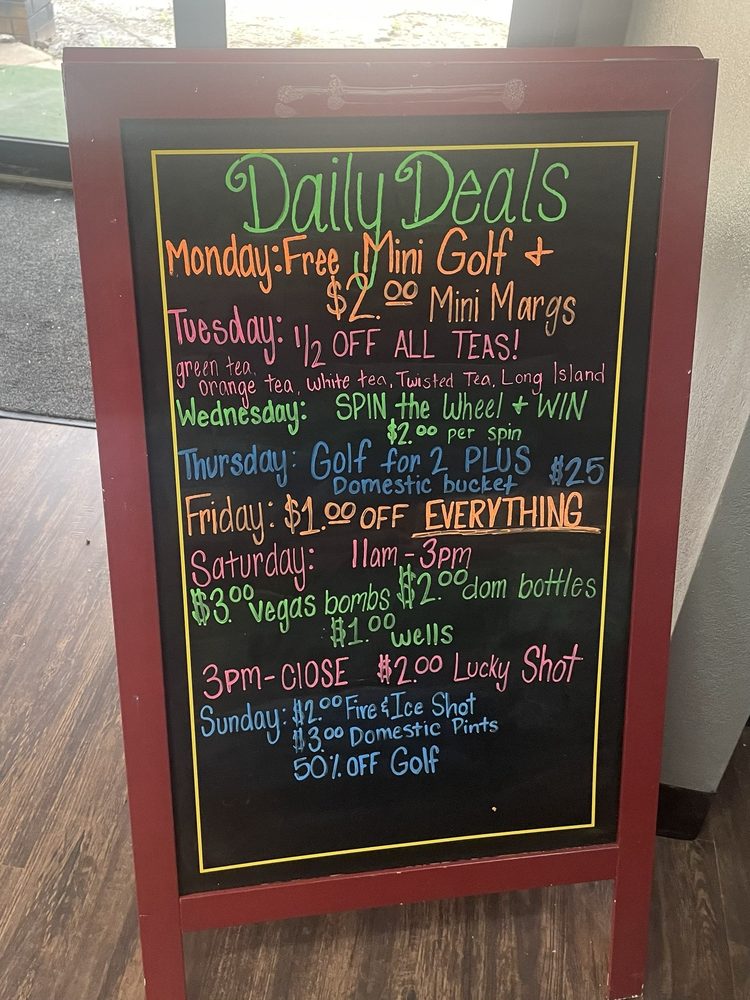 Daily Deals
Monday: Free Mini Golf +
$2.00 Mini Margs
Tuesday: 1/2 OFF ALL TEAS!
green tea,
orange tea, white tea, Twisted Tea, Long Island
Wednesday: SPIN the Wheel + WIN
$2.00 per spin
Thursday: Golf for 2 PLUS $25
Domestic bucket
Friday: $1.00 OFF EVERYTHING
Saturday: 11am - 3pm
$3.00 vegas bombs $2.00 dom bottles
$1.00 wells
3PM - CLOSE $2.00 Lucky Shot
Sunday: $2.00 Fire & Ice Shot
$3.00 Domestic Pints
50% OFF Golf